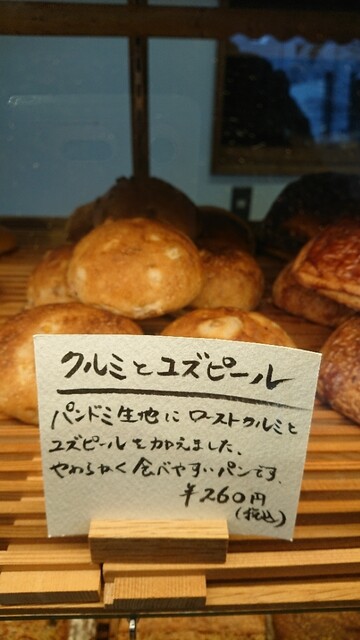 クルミとユズピール
パンドミ生地に ローストクルミと
ユズピールを加えました、
やわらかく食べやすいパンです.
¥260円
(税込)